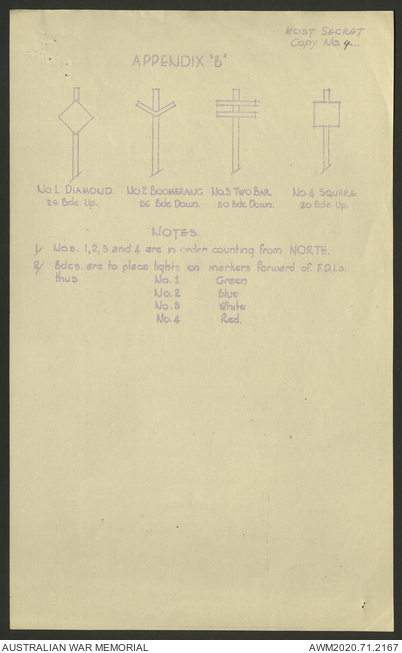 MOST SECRET
Copy No. 9...
APPENDIX "B"
No.1 DIAMOND
No.2 BOOMERANG
No.3 TWO BAR
No.4 SQUARE
26 Bde Down.
20 Bde Down.
20 Bde Up.
NOTES.
1/ Nos. 1,2,3 and 4 are in order counting from NORTH.
2/ Bdes. are to place lights on markers forward of F.D.Ls
thus
No. 1 Green
No. 2 Blue
No. 3 White
No. 4 Red.
AUSTRALIAN WAR MEMORIAL
AWM2020.71.2167